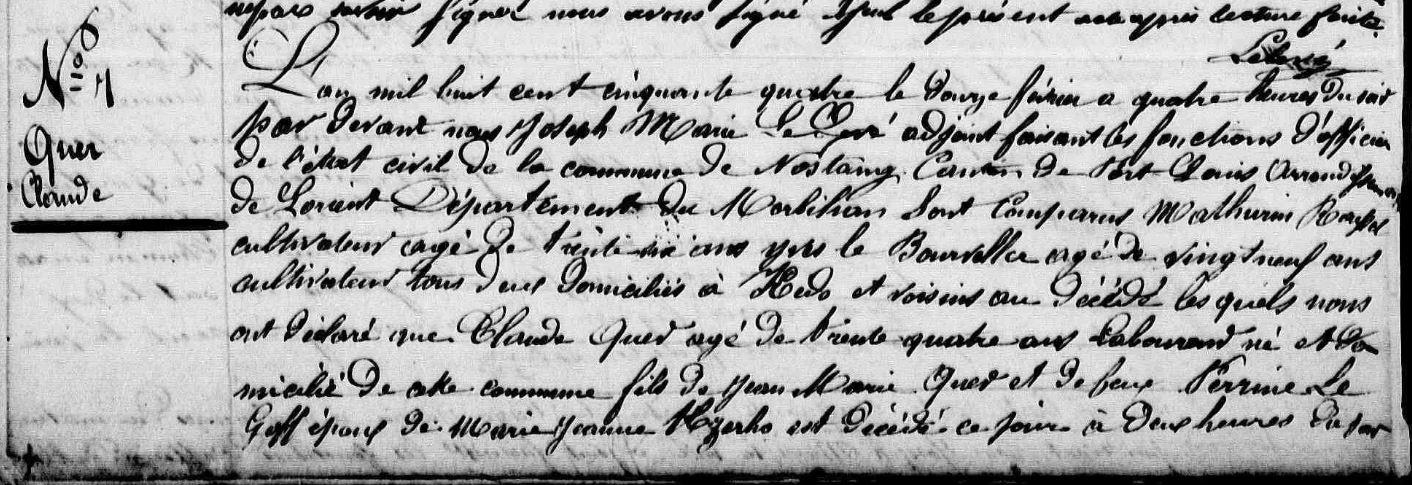 ne pas savoir signer nous avons signé seul le présent acte après lecture faite.
N° 7
Quer
Claude
L'an mil huit cent cinquante quatre le douze février a quatre heures du soir
par devant nous Joseph Marie Le adjoint faisant les fonctions d'officier
de l'état civil de la commune de Nostang Canton de Port Louis arrondissement
de Lorient Département du Morbihan Sont Comparus Mathurin
cultivateur agé de trente six ans yves le agé de vingt neuf ans
cultivateur tous deux domiciliés à et voisins au décédé les quels nous
ont déclaré que Claude Quer agé de trente quatre ans Laboureur né et do
micilié de cette commune fils de Jean Marie Quer et de feue Perrine Le
Goff époux de Marie Jeanne est décédé ce jour à deux heures du soir